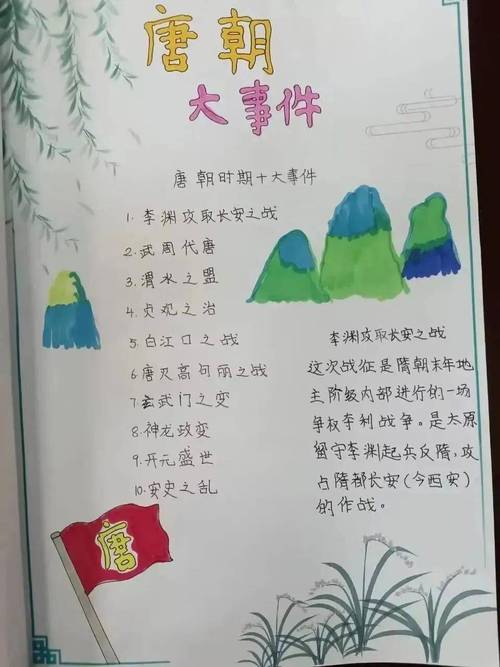 唐朝
大事件
唐朝时期十大事件
1. 李渊攻取长安之战
2. 武周代唐
3. 渭水之盟
4. 贞观之治
5. 白江口之战
6. 唐灭高句丽之战
7. 玄武门之变
8. 神龙政变
9. 开元盛世
10. 安史之乱
李渊攻取长安之战
这次战征是隋朝末年地
主阶级内部进行的一场
争权夺利战争。是太原
留守李渊起兵反隋，攻
占隋都长安（今西安）
的作战。
唐